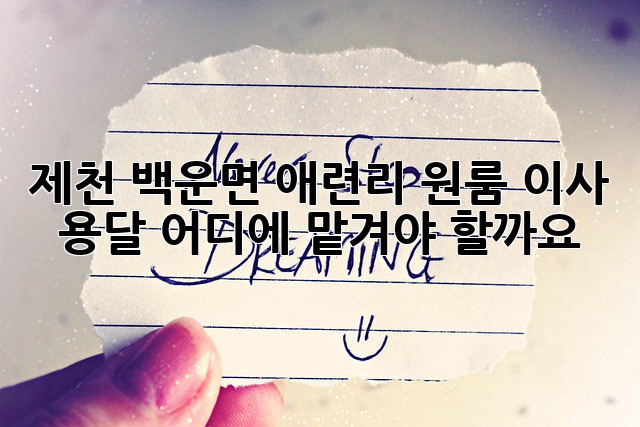 제천 백운면 애련리 원룸 이사
용달 어디에 맡겨야 할까요
Never Stop
DREAMING